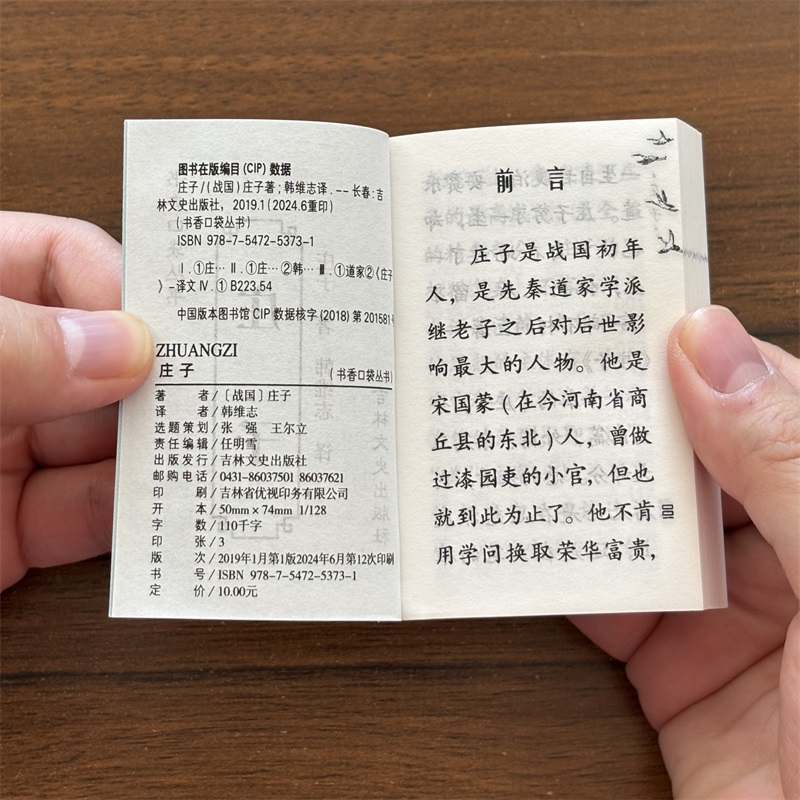 图书在版编目(CIP)数据
庄子/(战国)庄子著;韩维志译.--长春:吉
林文史出版社,2019.1(2024.6重印)
(书香口袋丛书)
ISBN 978-7-5472-5373-1
Ⅰ.①庄… Ⅱ.①庄…②韩… Ⅲ.①道家②《庄子
》-译文 Ⅳ.①B223.54
中国版本图书馆CIP数据核字(2018)第201581号
ZHUANGZI
庄子
(书香口袋丛书)
著者/〔战国〕庄子
译者/韩维志
选题策划/张强 王尔立
责任编辑/任明雪
出版发行/吉林文史出版社
邮购电话/0431-86037501 86037621
印刷/吉林省优视印务有限公司
开本/50mm×74mm 1/128
字数/110千字
印张/3
版次/2019年1月第1版2024年6月第12次印刷
书号/ISBN 978-7-5472-5373-1
定价/10.00元
前言
庄子是战国初年
人,是先秦道家学派
继老子之后对后世影
响最大的人物。他是
宋国蒙(在今河南省商
丘县的东北)人,曾做
过漆园吏的小官,但也
就到此为止了。他不肯
用学问换取荣华富贵,